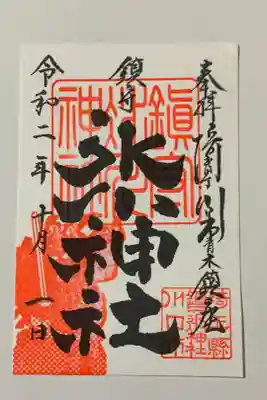 奉拝 川口市青木鎮座
鎮守
氷川神社
令和二年十月一日
鎮守氷川神社